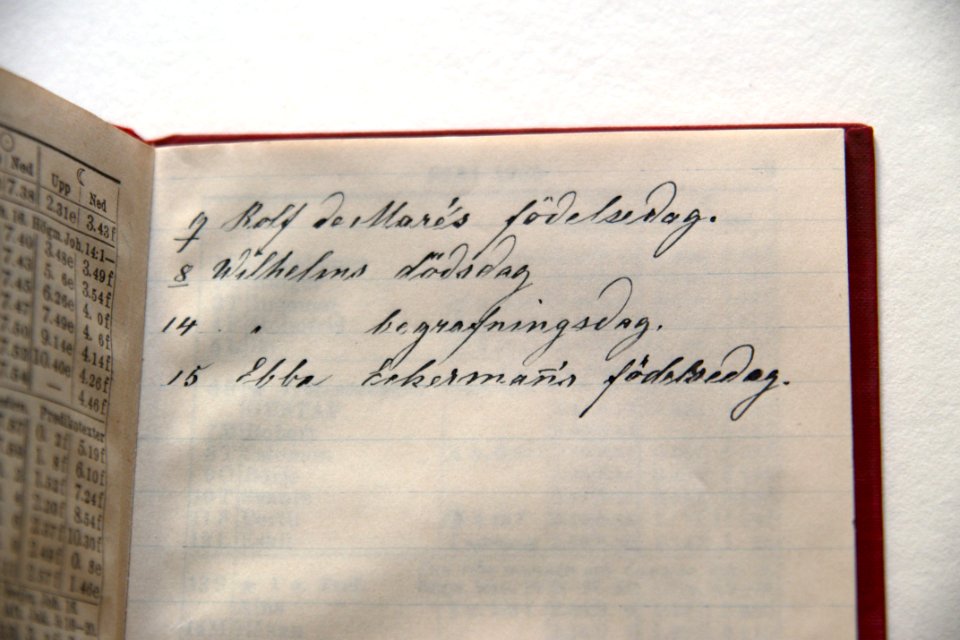 9 Rolf de Maré's födelsedag.
8 Wilhelms dödsdag
14 " begrafningsdag.
15 Ebba Eckermann's födelsedag.
Ned Upp Ned
7.38 2.31e 3.43f
Högm. Joh. 14:1—
7.40 3.48e 3.49f
7.43 5. 6e 3.54f
7.45 6.26e 4. 0f
7.47 7.49e 4. 6f
7.50 9.14e 4.14f
10.40e 4.26f
— 4.46f
Predikotexter
0. 2f 5.19f
6.10f
7.24f
8.54f
10.30f
0. 8e
1.46e